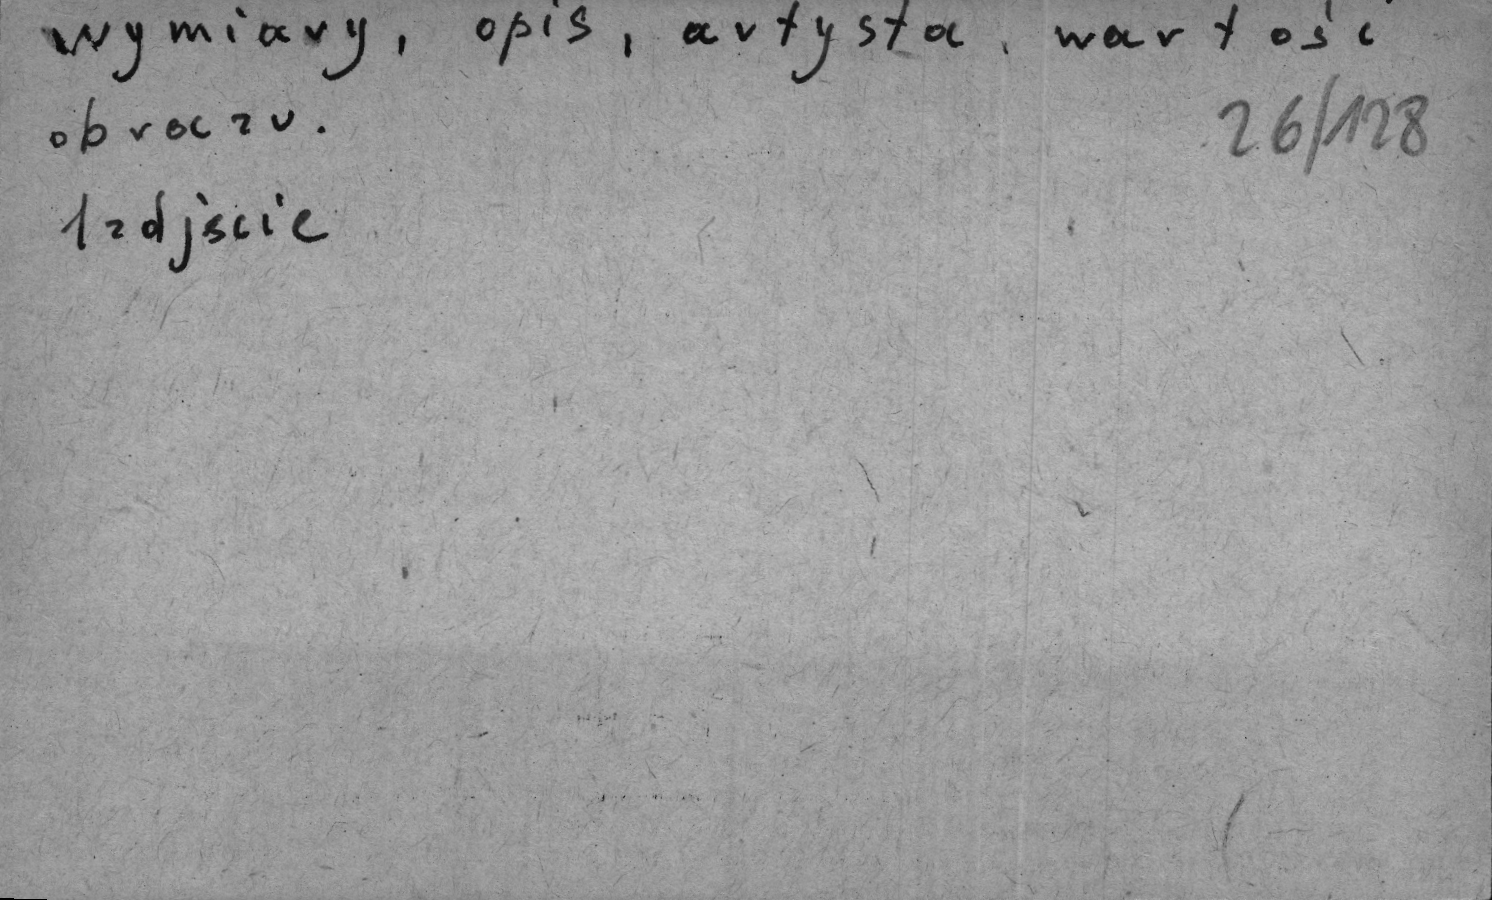 wymiary, opis, artysta, wartość
obrazu.
26/128
1 zdjęcie